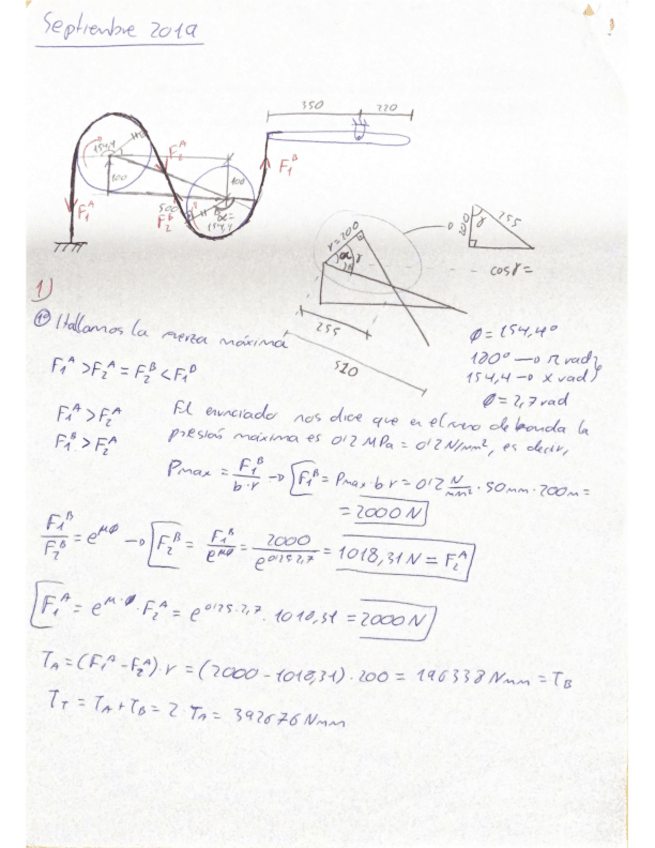 Septiembre 2019
350
220
F₁ᴮ
F₂ᴬ
154,4
100
100
F₁ᴬ
500
F₂ᴮ
α=
154,4
r=200
α
γ
255
520
200
γ
255
cosγ=
1)
1º Hallamos la fuerza máxima
F₁ᴬ > F₂ᴬ = F₂ᴮ < F₁ᴮ
Ø = 154,4º
180º → π rad
154,4 → x rad
Ø = 2,7 rad
F₁ᴬ > F₂ᴬ
F₁ᴮ > F₂ᴬ
El enunciado nos dice que en el freno de banda la
presión máxima es 0'2 MPa = 0'2 N/mm², es decir,
Pmax = F₁ᴮ / b·r → F₁ᴮ = Pmax · b r = 0'2 N/mm² · 50mm · 200m =
= 2000 N
F₁ᴮ / F₂ᴮ = e^μØ → F₂ᴮ = F₁ᴮ / e^μØ = 2000 / e^0'25·2,7 = 1018,31 N = F₂ᴬ
F₁ᴬ = e^μ·Ø · F₂ᴬ = e^0'25·2,7 · 1018,31 = 2000 N
T_A = (F₁ᴬ - F₂ᴬ) · r = (2000 - 1018,31) · 200 = 196338 Nmm = T_B
T_T = T_A + T_B = 2 · T_A = 392676 Nmm